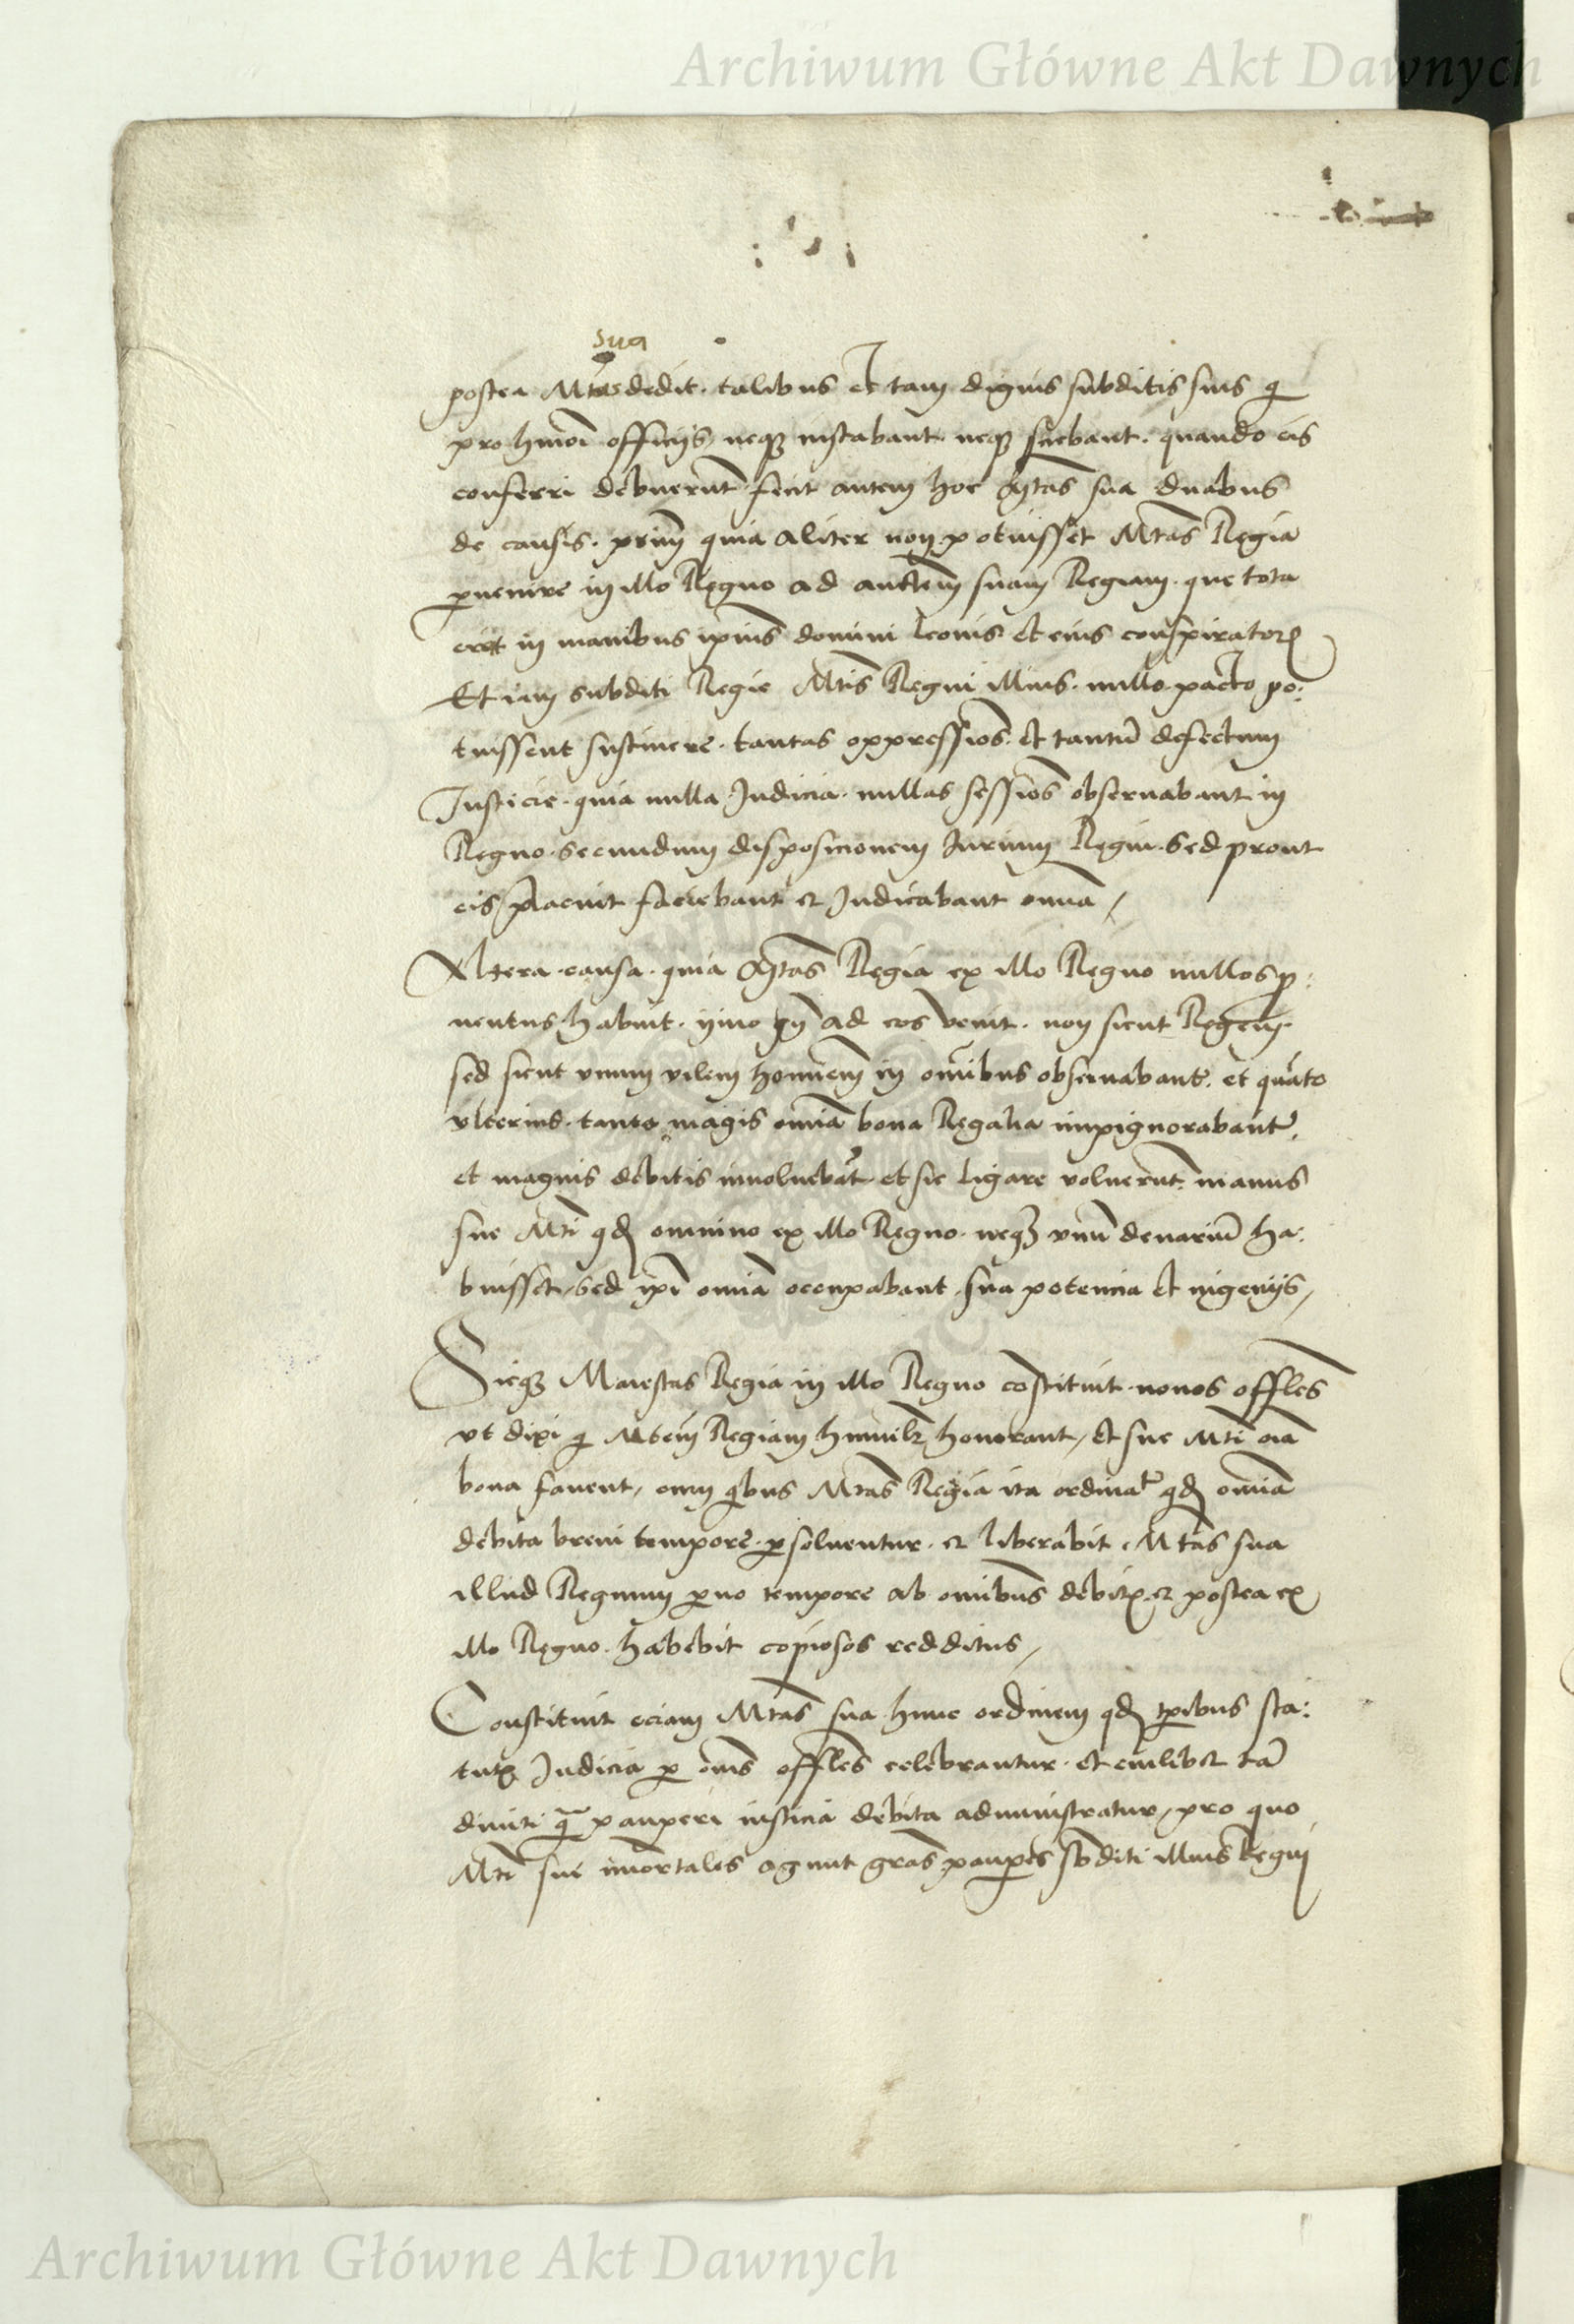 Archiwum Główne Akt Dawnych
sua
postea Mtas dedit. talibus et tam dignis subditis suis qi
pro hmoi officijs, neqz instabant. neqz sciebant. quando eis
conferri debuerunt. fecit autem hoc Mtas sua duabus
de causis. primu quia aliter non potuisset Mtas Regia
puenire in illo Regno ad auctem suam Regiam. que tota
erat in manibus ipius domini Leonis et eius conspirator
Et iam subditi Regie Mtis Regni illius. nullo pacto po:
tuissent sustinere. tantas oppressios. et tantu defectum
Justicie. quia nulla Judicia. nullas sessios obseruabant in
Regno. secundum disposicionem Jurium Regni. sed prout
eis placuit faciebant et Judicabant omia /
Altera causa. quia Mtas Regia ex illo Regno nullos p:
uentus habuit. ymo qn ad eos venit. non sicut Regem.
sed sicut vnum vilem hominem in omibus obseruabant. et quato
vlterius. tanto magis omia bona Regalia impignorabant.
et magnis debitis inuoluebat et sic ligare voluerunt. manus
sue Mti qd omnino ex illo Regno. neqz vnu denariu ha:
buisset, sed ipi omia occupabant. sua potencia et ingenijs,
Sicqz Maiestas Regia in illo Regno costituit. nouos offles
vt dixi qi Mtem Regiam humilr honorant, et sue Mti oia
bona fauent, cum qibus Mtas Regia ita ordinat qd omia
debita breui tempore. psoluentur. et liberabit. Mtas sua
illud Regnum puo tempore ab omibus debit. et postea ex
illo Regno. habebit copiosos redditus,
Constituit eciam Mtas sua hunc ordinem qd tpibus sta:
tut Judicia p oms offles celebrantur. et cuilibet ta
diuiti qa pauperi iusticia debita administratur, pro quo
Mti sue imortales agunt gras paupes sbditi illius Regni
Archiwum Główne Akt Dawnych